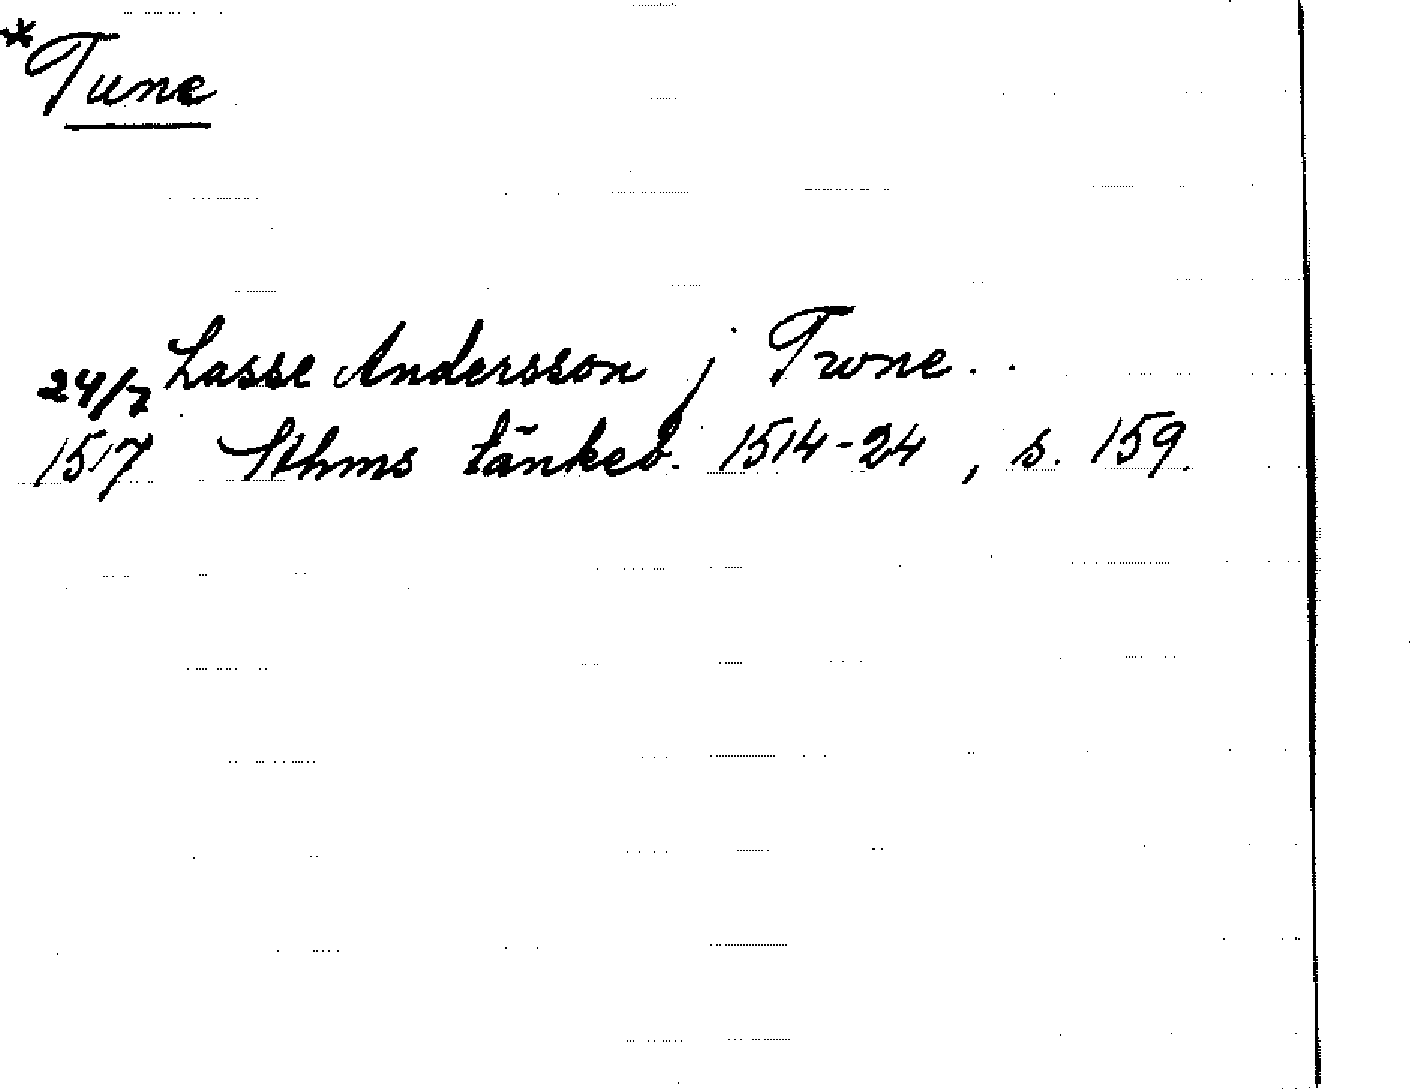 *Tune
24/7 Lasse Andersson j Twne..
1517 Sthms tänkeb. 1514-24, s. 159.